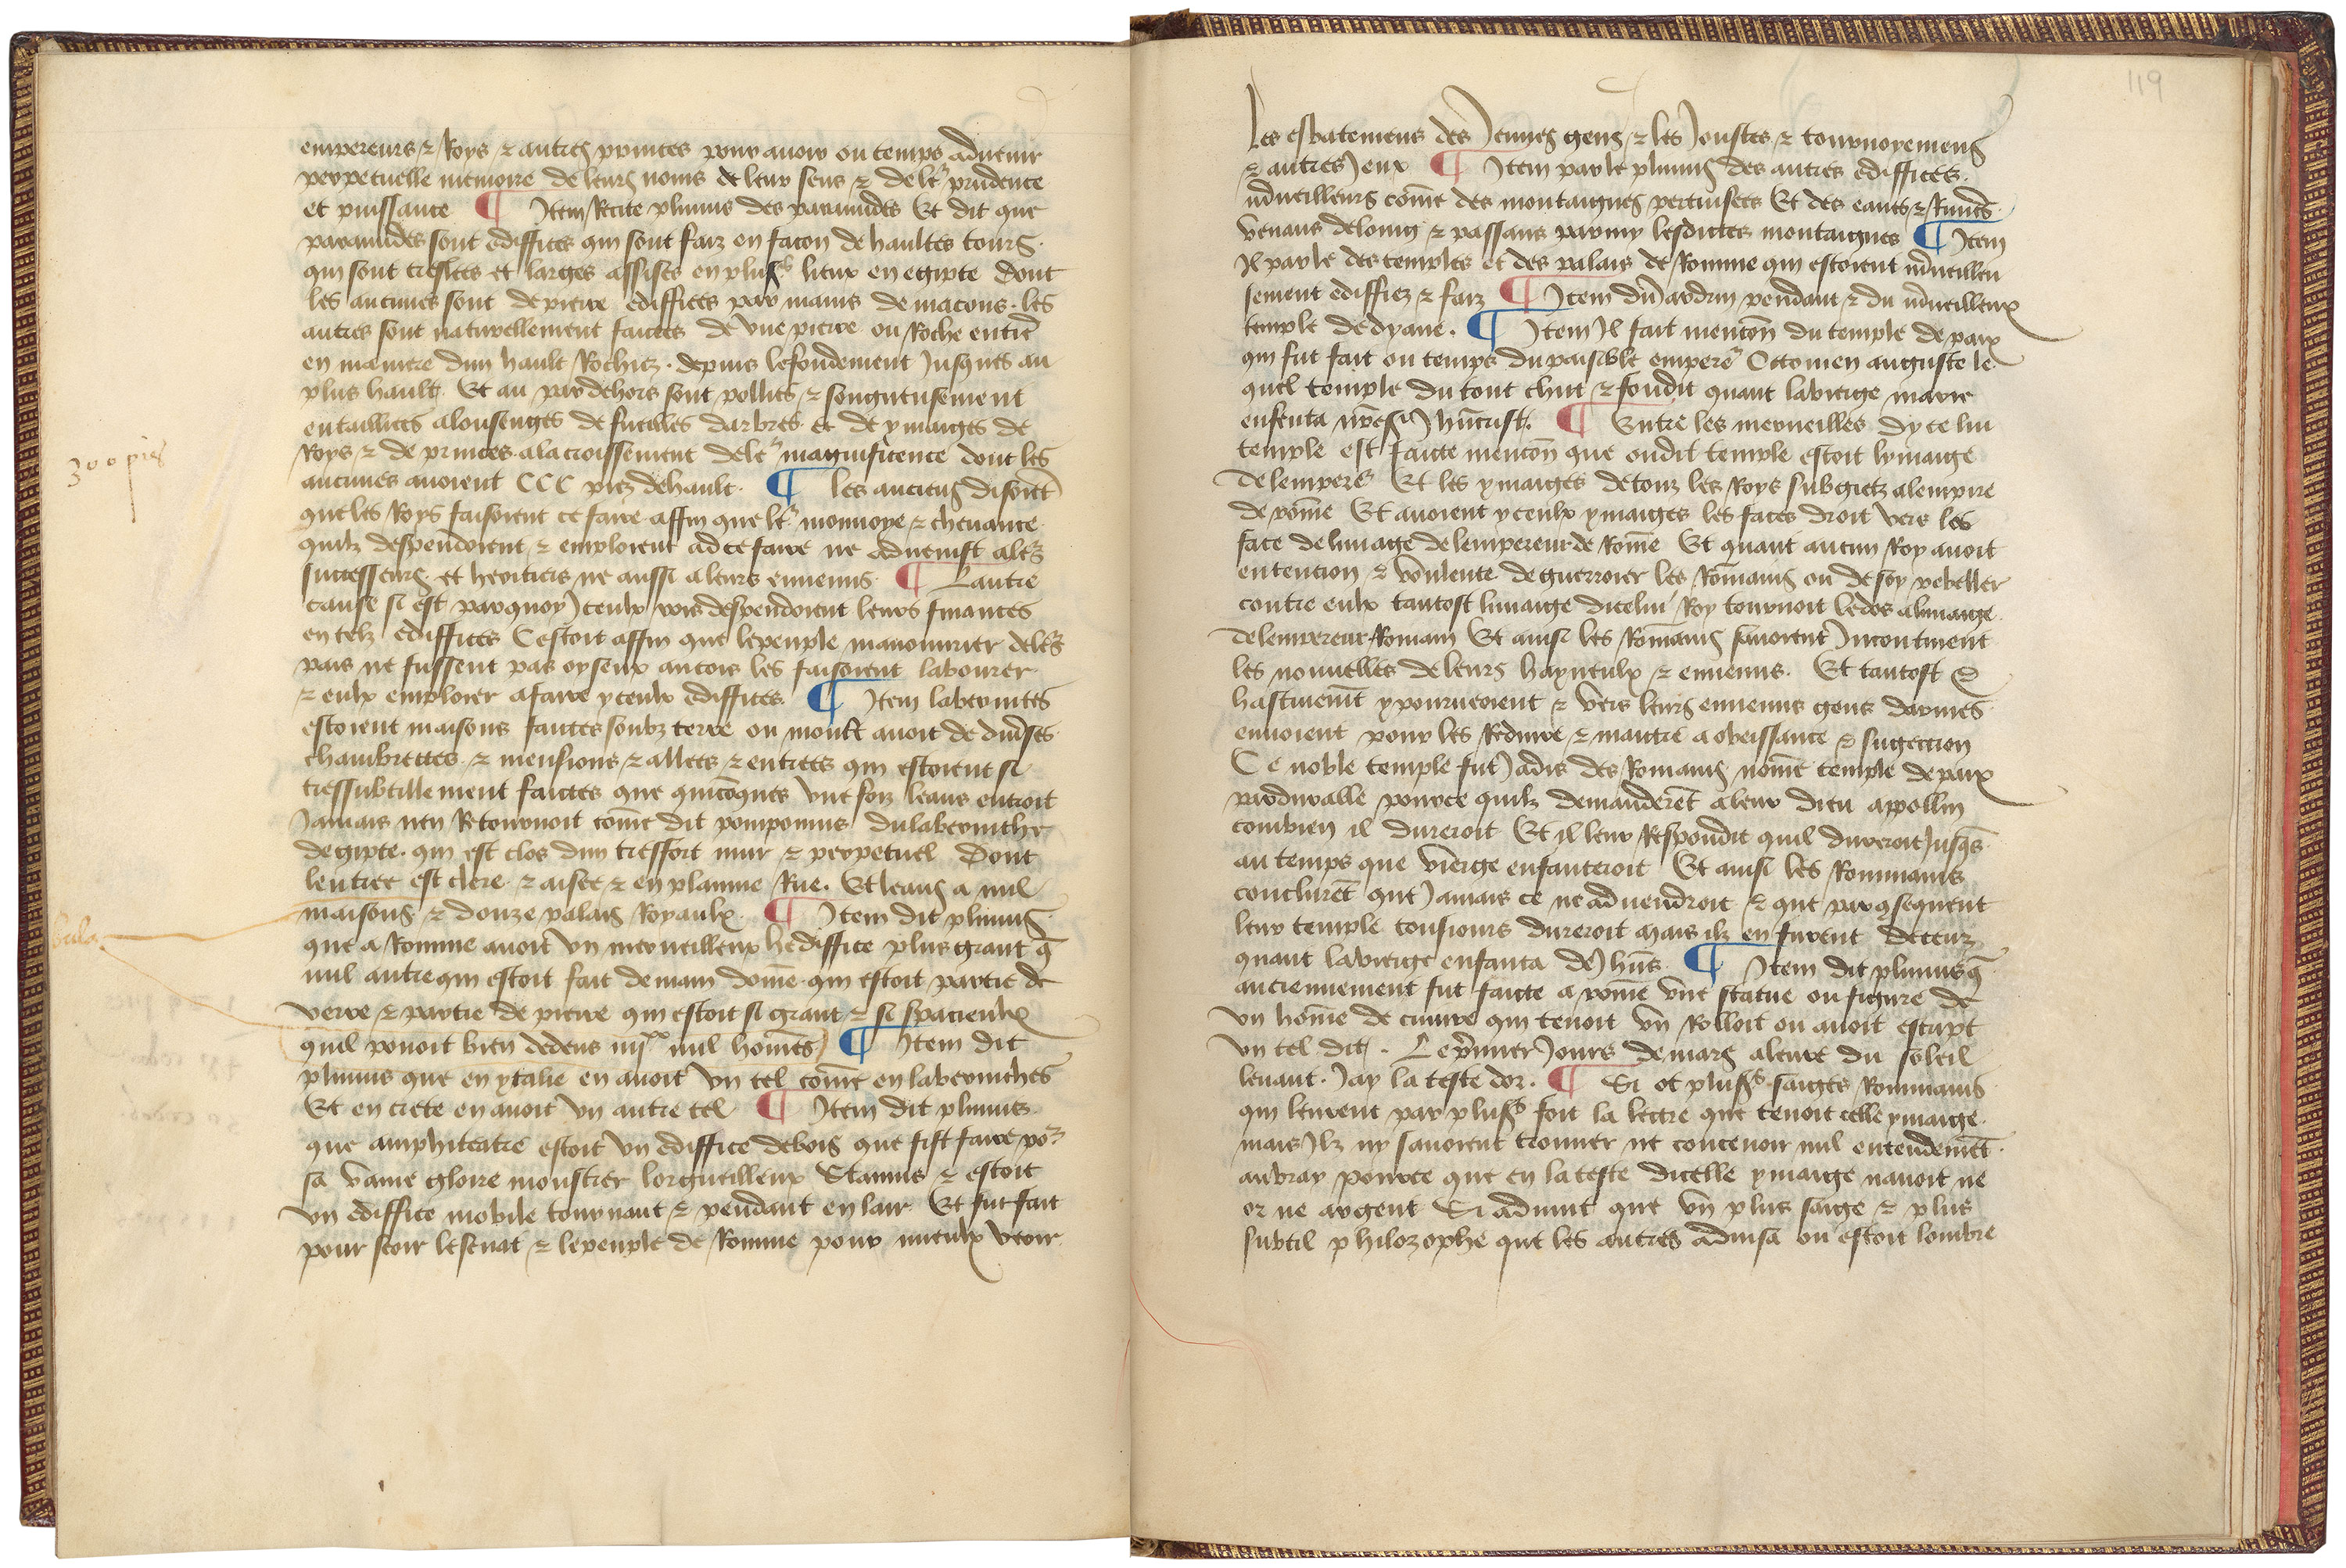 empereurs ⁊ Roys ⁊ autres princes pour auoir ou temps aduenir
perpetuelle memoire de leurs noms de leur sens ⁊ de ler prudence
et puissance ¶ Item Recite plinius des piramides Et dit que
piramides sont ediffices qui sont faiz en facon de haultes tours
qui sont treslees et larges assises en pluss lieux en egipte dont
les aucunes sont de pierre ediffiees par mains de macons . les
autres sont naturellement faictes de vne pierre ou Roche entiere
en maniere dun hault Rochier . depuis le fondement Jusques au
plus hault . Et au par dehors sont pollies ⁊ songneusement
entaillees a lousenges de fueilles darbres et de ymaiges de
Roys ⁊ de princes . a lacroissement de ler magnificence dont les
aucunes auoient CCC piez de hault . ¶ les anciens disoient
300 pies
que les Roys faisoient ce faire affin que ler monnoye ⁊ cheuance
quilz despendoient ⁊ emploient ad ce faire ne aduenist a lers
successeurs et heritiers ne aussi a leurs ennemis ¶ Lautre
cause si est parquoy Jceulx roys despendoient leurs finances
en telz ediffices Cestoit affin que le peuple manouurier de lers
pais ne fussent pas oyseux ancois les faisoient labourer
⁊ eulx emploier a faire yceulx ediffices . ¶ Item laberintes
estoient maisons faictes soubz terre ou moult auoit de diuerses
chambrettes ⁊ mensions ⁊ allees ⁊ entrees qui estoient si
tressubtillement faictes que quiconques vne foiz leans entroit
Jamais nen Retournoit come dit pomponius du laberinthe
degipte . qui est clos dun tresfort mur ⁊ perpetuel Dont
lentree est clere ⁊ aisee ⁊ en plaine Rue . Et leans a mil
maisons ⁊ douze palais Royaulx . ¶ Item dit plinius
que a Romme auoit vn merueilleux hediffice plus grant q̄
nul autre qui estoit fait de main dome . qui estoit partie de
verre ⁊ partie de pierre qui estoit si grant ⁊ si spacieulx
quil pouoit bien dedens iiijxx mil homes ¶ Item dit
plinius que en ytalie en auoit vn tel come en laberinthes
Et en crete en auoit vn autre tel ¶ Item dit plinius
que amphiteatre estoit vn ediffice de bois que fist faire por
sa vaine gloire monstrer lorgueilleux Staurus ⁊ estoit
vn ediffice mobile tournant ⁊ pendant en lair . Et fut fait
pour seoir le senat ⁊ le peuple de Romme pour mieulx veoir
119
les esbatemens des Jeunes gens ⁊ les Joustes ⁊ tournoyemens
⁊ autres Jeux ¶ Item parle plinius des autres ediffices
m̄ueilleurs come des montaignes pertuisees Et des eaues ⁊ Riuieres
venans de loing ⁊ passans parmy lesdictes montaignes ¶ Item
Jl parle des temples et des palais de Romme qui estoient m̄ueilleu
sement ediffiez ⁊ faiz ¶ Item du Jardin pendant ⁊ du m̄ueilleux
temple de dyane . ¶ Item Jl fait mencōn du temple de paix
qui fut fait ou temps du paisible empere Ottouien auguste le
quel temple du tout cheut ⁊ fondit quant la vierge marie
enfenta nre sr Jhucrist . ¶ Entre les merueilles dycelui
temple est faicte mencōn que oudit temple estoit lymaige
de lempere Et les ymaiges de touz les Roys subgietz a lempire
de rome Et auoient yceulx ymaiges les faces droit vers les
face de limage de lempereur de Rome Et quant aucun Roy auoit
entencion ⁊ voulente de guerroier les Romains ou de soy rebeller
contre eulx tantost limaige dicelui Roy tournoit le dos a limaige
de lempereur Romain Et ainsi les Romains sauoient Incontinent
les nouuelles de leurs hayneulx ⁊ ennemis . Et tantost ⁊
hastiuemēt y pourueoient ⁊ vers leurs ennemis gens darmes
enuoient pour les Reduire ⁊ mectre a obeissance ⁊ sugection
Ce noble temple fut Jadis des Romains nome temple de paix
pardurable pource quilz demanderēt a leur dieu appollin
combien il dureroit Et il leur Respondit quil dureroit Jusqs
au temps que vierge enfanteroit Et ainsi les Rommains
conclurēt que Jamais ce ne aduendroit ⁊ que par ꝯsequent
leur temple tousiours dureroit mais ilz en furent deceuz
quant la vierge enfanta de Jhus . ¶ Item dit plinius q̄
anciennement fut faicte a rome vne statue ou figure de
vn home de cuiure qui tenoit vn Rolloit ou auoit escript
vn tel dit . Le p̄mier Jours de mars a leure du soleil
leuant . Jay la teste dor . ¶ Si ot pluss saiges Rommains
qui leurent par pluss foiz la lectre que tenoit celle ymaige
mais Jlz ny sauoient trouuer ne conceuoir nul entendemēt
au vray pource que en la teste dicelle ymaige nauoit ne
or ne argent Si aduint que vn plus saige ⁊ plus
subtil philozophe que les autres aduisa ou estoit lombre